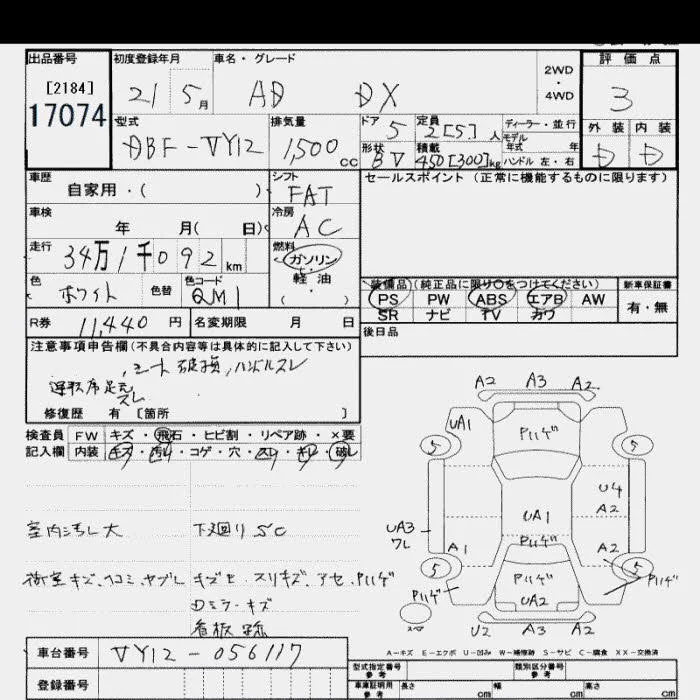 出品番号 初度登録年月 車名・グレード 評価点
[2184] 21 5月 AD DX 2WD・4WD 3
17074
型式 排気量 ドア 5 定員 2[5]人 ディーラー・並行 外装 内装
DBF-VY12 1,500cc 形状 BV 積載 450[300]kg モデル年式 年 D D
ハンドル 左・右
車歴 シフト セールスポイント (正常に機能するものに限ります)
自家用・( ) FAT
車検 冷房
年 月( 日) AC
走行 燃料
34万1千092km ガソリン
軽油
色 色替 色コード ・( )
ホワイト QM1
装備品(純正品に限り○をつけてください) 新車保証書
PS PW ABS エアB AW 有・無
SR ナビ TV カワ
R券 11440円 名変期限 月 日 後日品
注意事項申告欄(不具合内容等は具体的に記入して下さい)
シート破損,ハンドルスレ
運転席足元スレ
修復歴 有 [箇所 ]
検査員 FW キズ・飛石・ヒビ割・リペア跡・×要
記入欄 内装 キズ・汚レ・コゲ・穴・スレ・キレ・破レ
室内汚レ大 下廻りSC
荷室キズ、ヘコミ、ヤブレ キズE、スリキズ、アセ、P11ゲ
Dミラーキズ
看板跡
A2 A3 A2
UA1 P11ゲ
5 5
U4
A2
UA3 UA1
ワレ P11ゲ
A1 A2
5 P11ゲ 5
P11ゲ UA2 P11ゲ
スペ
U2 A3 A2
A-キズ E-エクボ U-凹み W-補修跡 S-サビ C-腐食 XX-交換済
車台番号 VY12-056117
登録番号
型式指定番号 参考 類別区分番号 参考
車庫証明用 参考 長さ cm 幅 cm 高さ cm